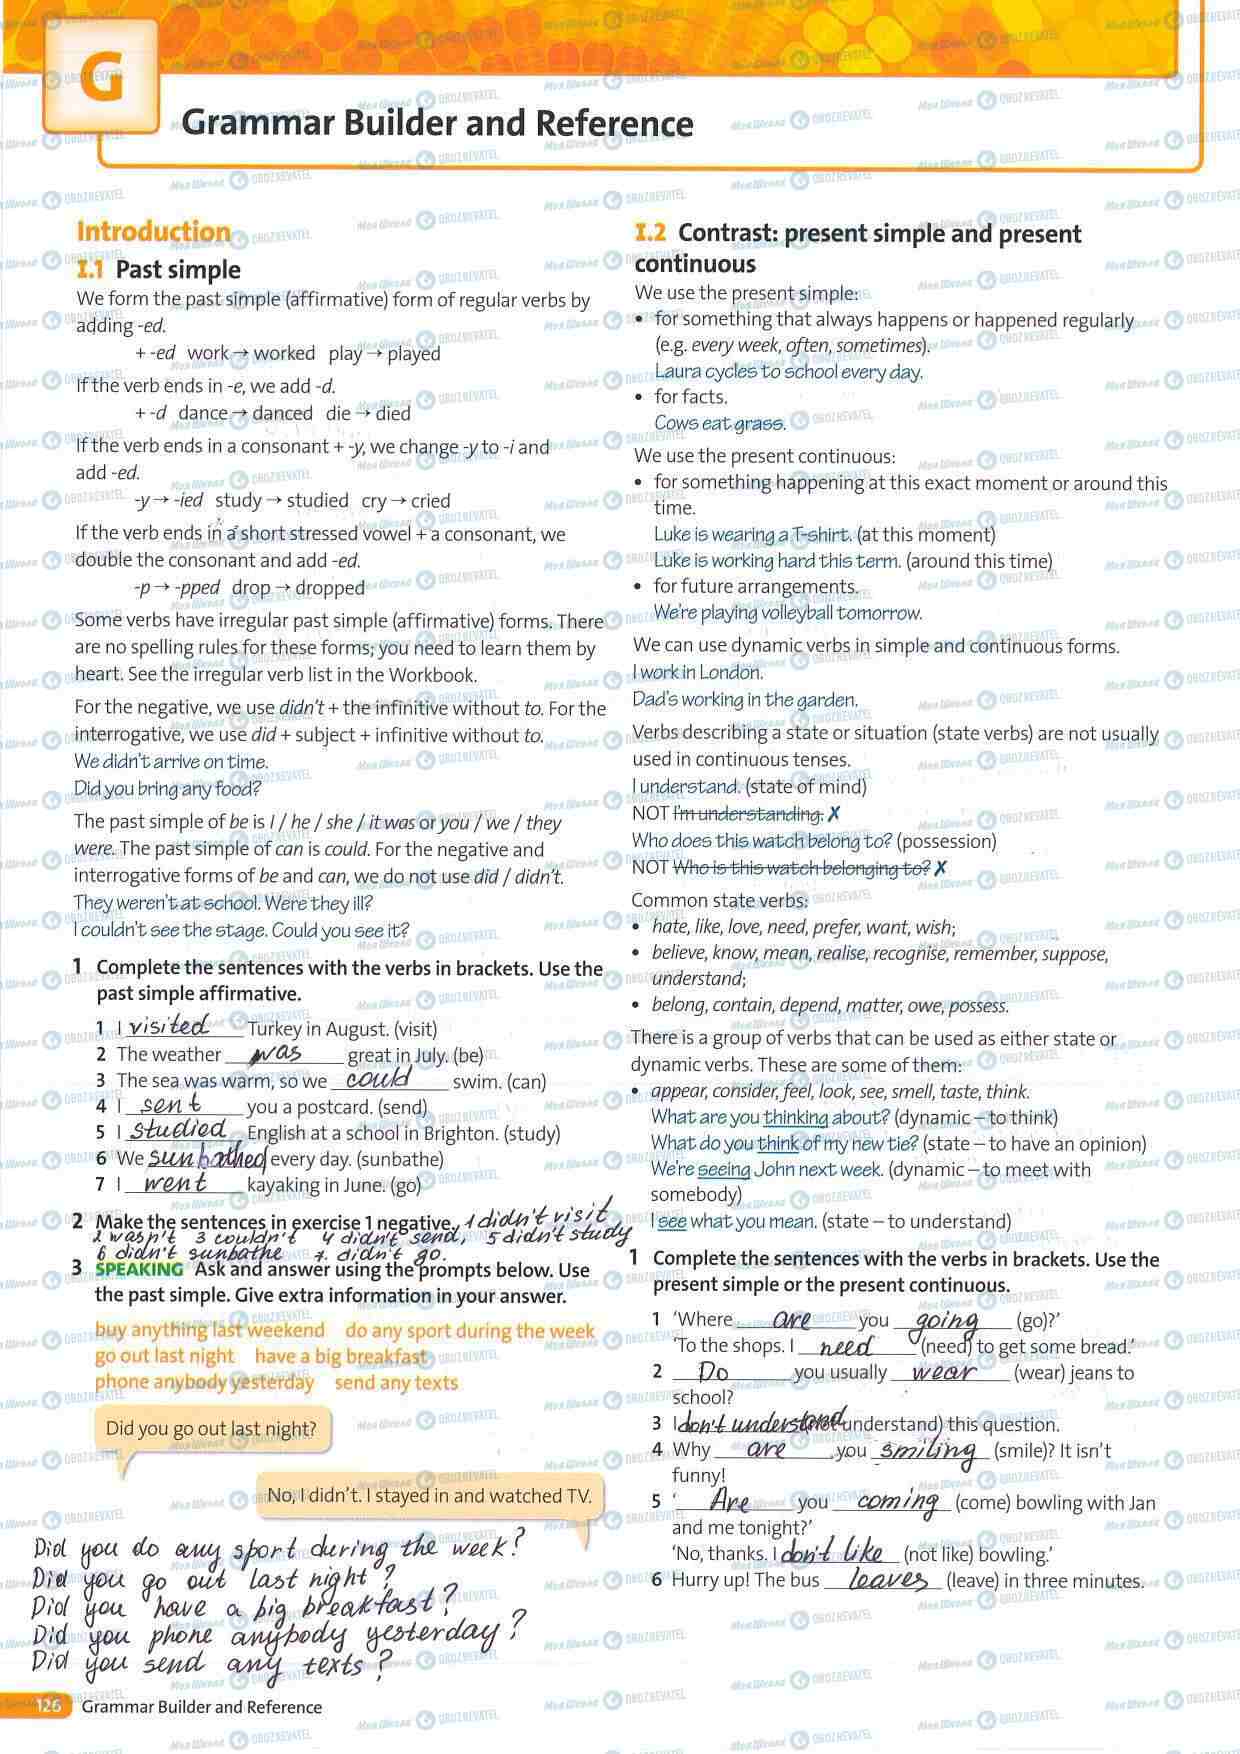 G
Grammar Builder and Reference
Introduction
I.1 Past simple
We form the past simple (affirmative) form of regular verbs by
adding -ed.
+ -ed work → worked play → played
If the verb ends in -e, we add -d.
+ -d dance → danced die → died
If the verb ends in a consonant + -y, we change -y to -i and
add -ed.
-y → -ied study → studied cry → cried
If the verb ends in a short stressed vowel + a consonant, we
double the consonant and add -ed.
-p → -pped drop → dropped
Some verbs have irregular past simple (affirmative) forms. There
are no spelling rules for these forms; you need to learn them by
heart. See the irregular verb list in the Workbook.
For the negative, we use didn't + the infinitive without to. For the
interrogative, we use did + subject + infinitive without to.
We didn't arrive on time.
Did you bring any food?
The past simple of be is I / he / she / it was or you / we / they
were. The past simple of can is could. For the negative and
interrogative forms of be and can, we do not use did / didn't.
They weren't at school. Were they ill?
I couldn't see the stage. Could you see it?
1 Complete the sentences with the verbs in brackets. Use the
past simple affirmative.
1 I visited Turkey in August. (visit)
2 The weather was great in July. (be)
3 The sea was warm, so we could swim. (can)
4 I sent you a postcard. (send)
5 I studied English at a school in Brighton. (study)
6 We sunbathed every day. (sunbathe)
7 I went kayaking in June. (go)
2 Make the sentences in exercise 1 negative. 1 didn't visit
2 wasn't 3 couldn't 4 didn't send, 5 didn't study
6 didn't sunbathe 7. didn't go.
3 SPEAKING Ask and answer using the prompts below. Use
the past simple. Give extra information in your answer.
buy anything last weekend do any sport during the week
go out last night have a big breakfast
phone anybody yesterday send any texts
Did you go out last night?
No, I didn't. I stayed in and watched TV.
Did you do any sport during the week?
Did you go out last night?
Did you have a big breakfast?
Did you phone anybody yesterday?
Did you send any texts?
126 Grammar Builder and Reference
I.2 Contrast: present simple and present
continuous
We use the present simple:
• for something that always happens or happened regularly
(e.g. every week, often, sometimes).
Laura cycles to school every day.
• for facts.
Cows eat grass.
We use the present continuous:
• for something happening at this exact moment or around this
time.
Luke is wearing a T-shirt. (at this moment)
Luke is working hard this term. (around this time)
• for future arrangements.
We're playing volleyball tomorrow.
We can use dynamic verbs in simple and continuous forms.
I work in London.
Dad's working in the garden.
Verbs describing a state or situation (state verbs) are not usually
used in continuous tenses.
I understand. (state of mind)
NOT I'm understanding. ✗
Who does this watch belong to? (possession)
NOT Who is this watch belonging to? ✗
Common state verbs:
• hate, like, love, need, prefer, want, wish;
• believe, know, mean, realise, recognise, remember, suppose,
understand;
• belong, contain, depend, matter, owe, possess.
There is a group of verbs that can be used as either state or
dynamic verbs. These are some of them:
• appear, consider, feel, look, see, smell, taste, think.
What are you thinking about? (dynamic – to think)
What do you think of my new tie? (state – to have an opinion)
We're seeing John next week. (dynamic – to meet with
somebody)
I see what you mean. (state – to understand)
1 Complete the sentences with the verbs in brackets. Use the
present simple or the present continuous.
1 'Where are you going (go)?'
'To the shops. I need (need) to get some bread.'
2 Do you usually wear (wear) jeans to
school?
3 I don't understand (not understand) this question.
4 Why are you smiling (smile)? It isn't
funny!
5 'Are you coming (come) bowling with Jan
and me tonight?'
'No, thanks. I don't like (not like) bowling.'
6 Hurry up! The bus leaves (leave) in three minutes.